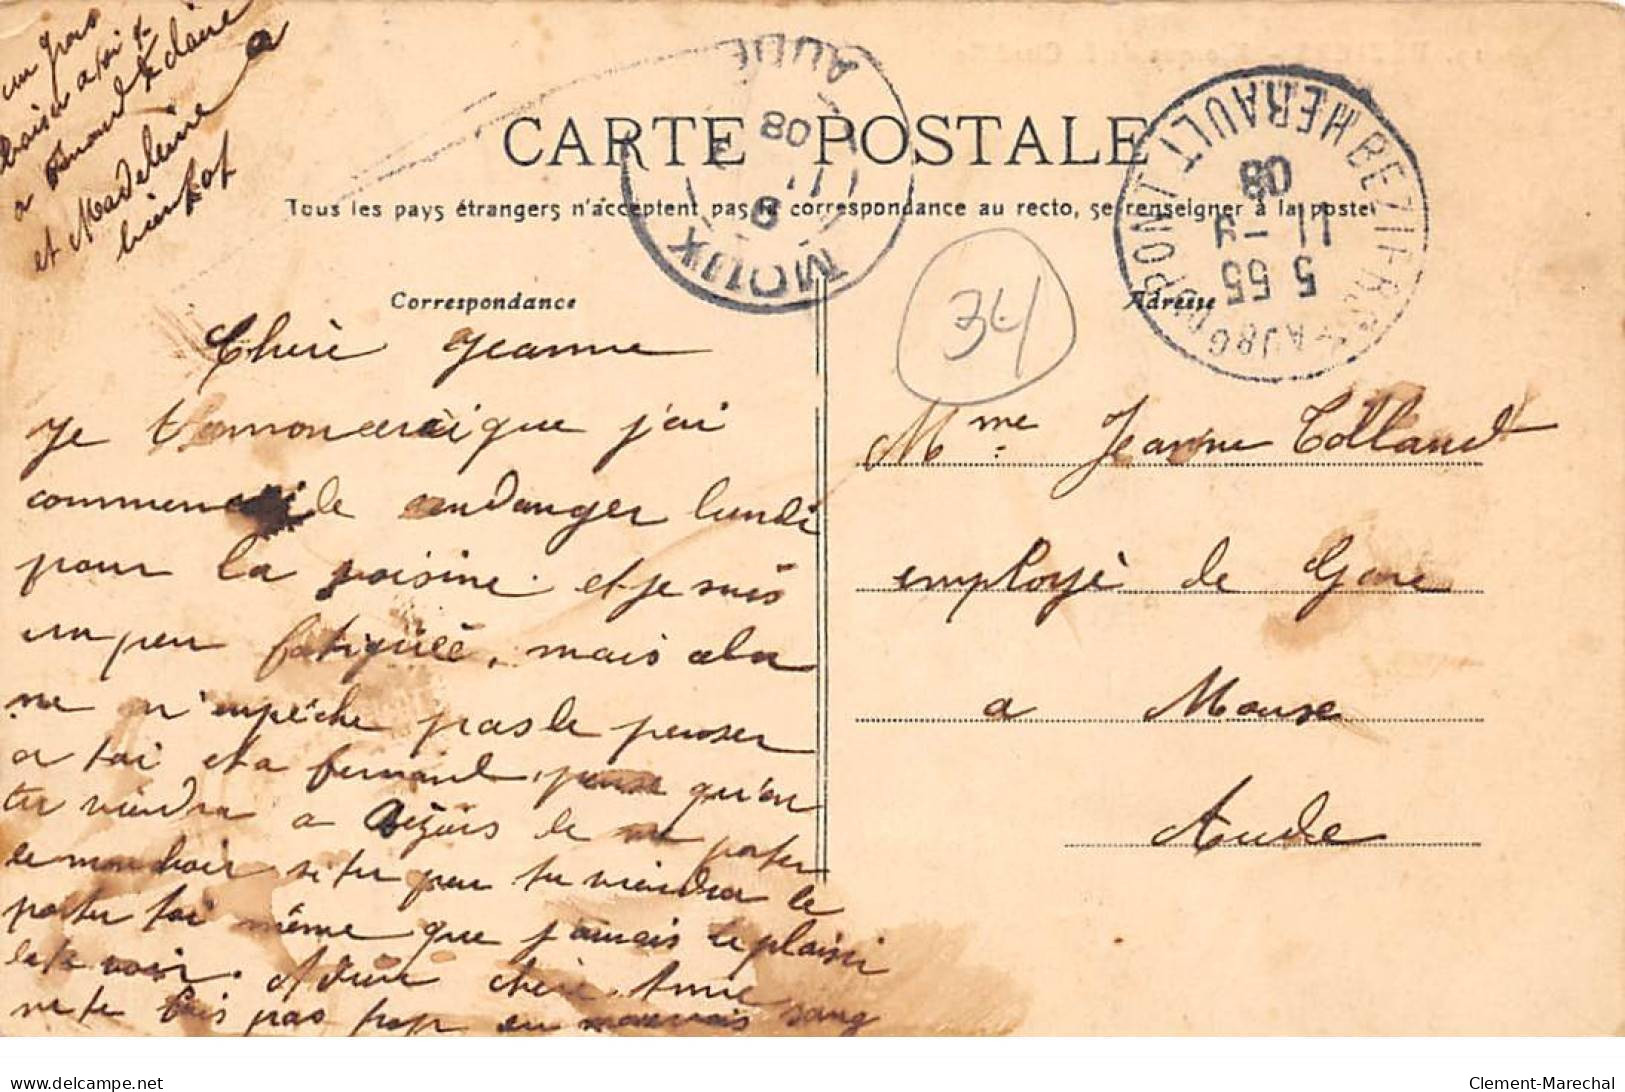 un gros
baiser a toi &
a Fernand & claire
et Madeleine a
bientot
CARTE POSTALE
Tous les pays étrangers n'acceptent pas la correspondance au recto, se renseigner à la poste
MOUX AUDE
9
08
BEZIERS FAUBG DU PONT HERAULT
5 55
11 - 9
08
34
Correspondance
Adresse
Chere Jeanne
Je que j'ai
commencé de vendanger lundi
pour la voisine et je suis
un peu fatiguée, mais cela
ne m'empêche pas de penser
a toi et a Fernand, pense qu'on
tu viendra a Béziers de me porter
le mouchoir si tu peu tu viendra le
porter toi même que j'aurais le plaisir
de te voir. Adieu chère Amie
ne te fais pas trop en mauvais sang
Mme Jeanne Tolland
employé de Gare
a Mouxe
Aude
www.delcampe.net
Clement-Marechal